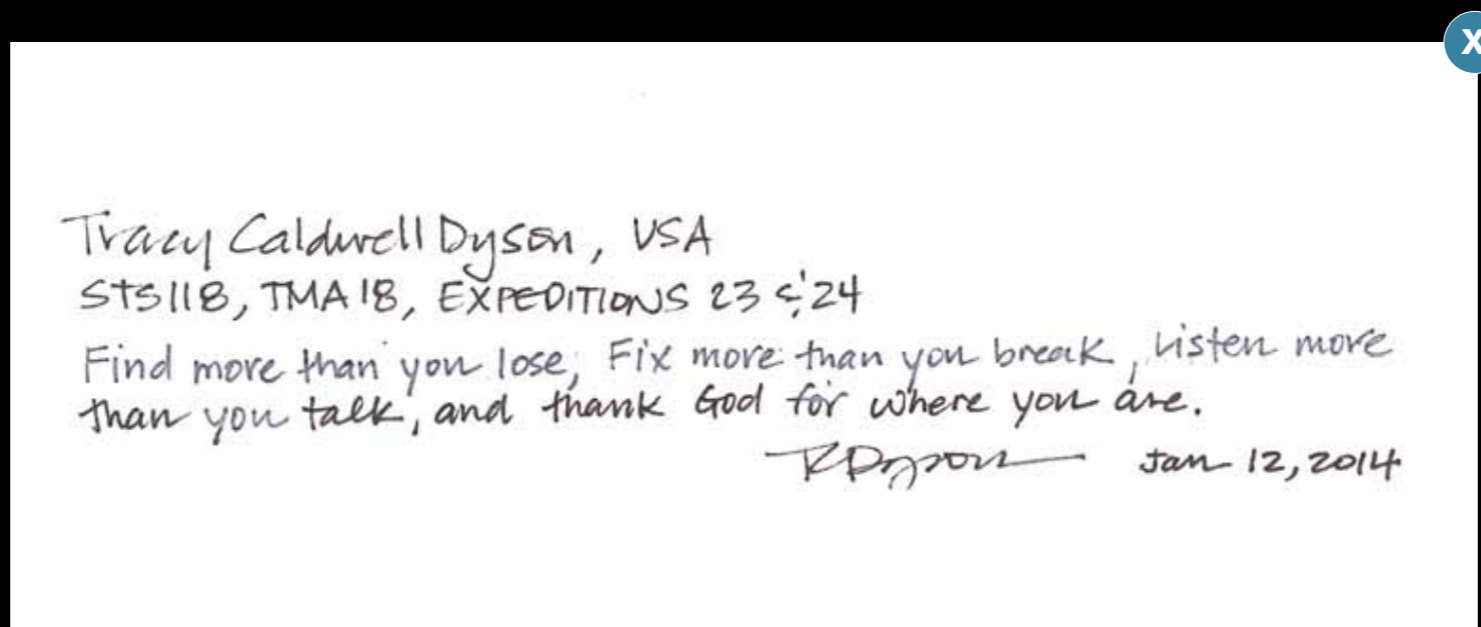 X
Tracy Caldwell Dyson, USA
STS118, TMA18, EXPEDITIONS 23 & 24
Find more than you lose, Fix more than you break, Listen more
than you talk, and thank God for where you are.
TRDyson Jan 12, 2014